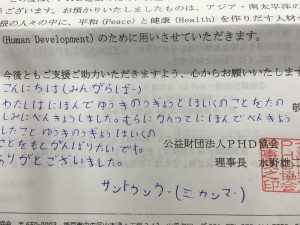 うございます。お預かりいたしましたものは、アジア・南太平洋の
の人々の中に、平和(Peace)と健康(Health)を作りだす人材
(Human Development)のために用いさせていただきます。
今後ともご支援ご助力いただきますよう、心からお願いいたします
こんにちは(みんがらばー)
わたしはにほんでゆうきのうぎょうとほいくのことをたの
しみにべんきょうしました。むらにかえってにほんでべんきょう
したこと ゆうきのうぎょうほいくの
公益財団法人PHD協会
ことをもとがんばりたいです。
理事長 水野雄二
ありがとございました。
サントウンウー(ミャンマー)
協会 〒650-0003